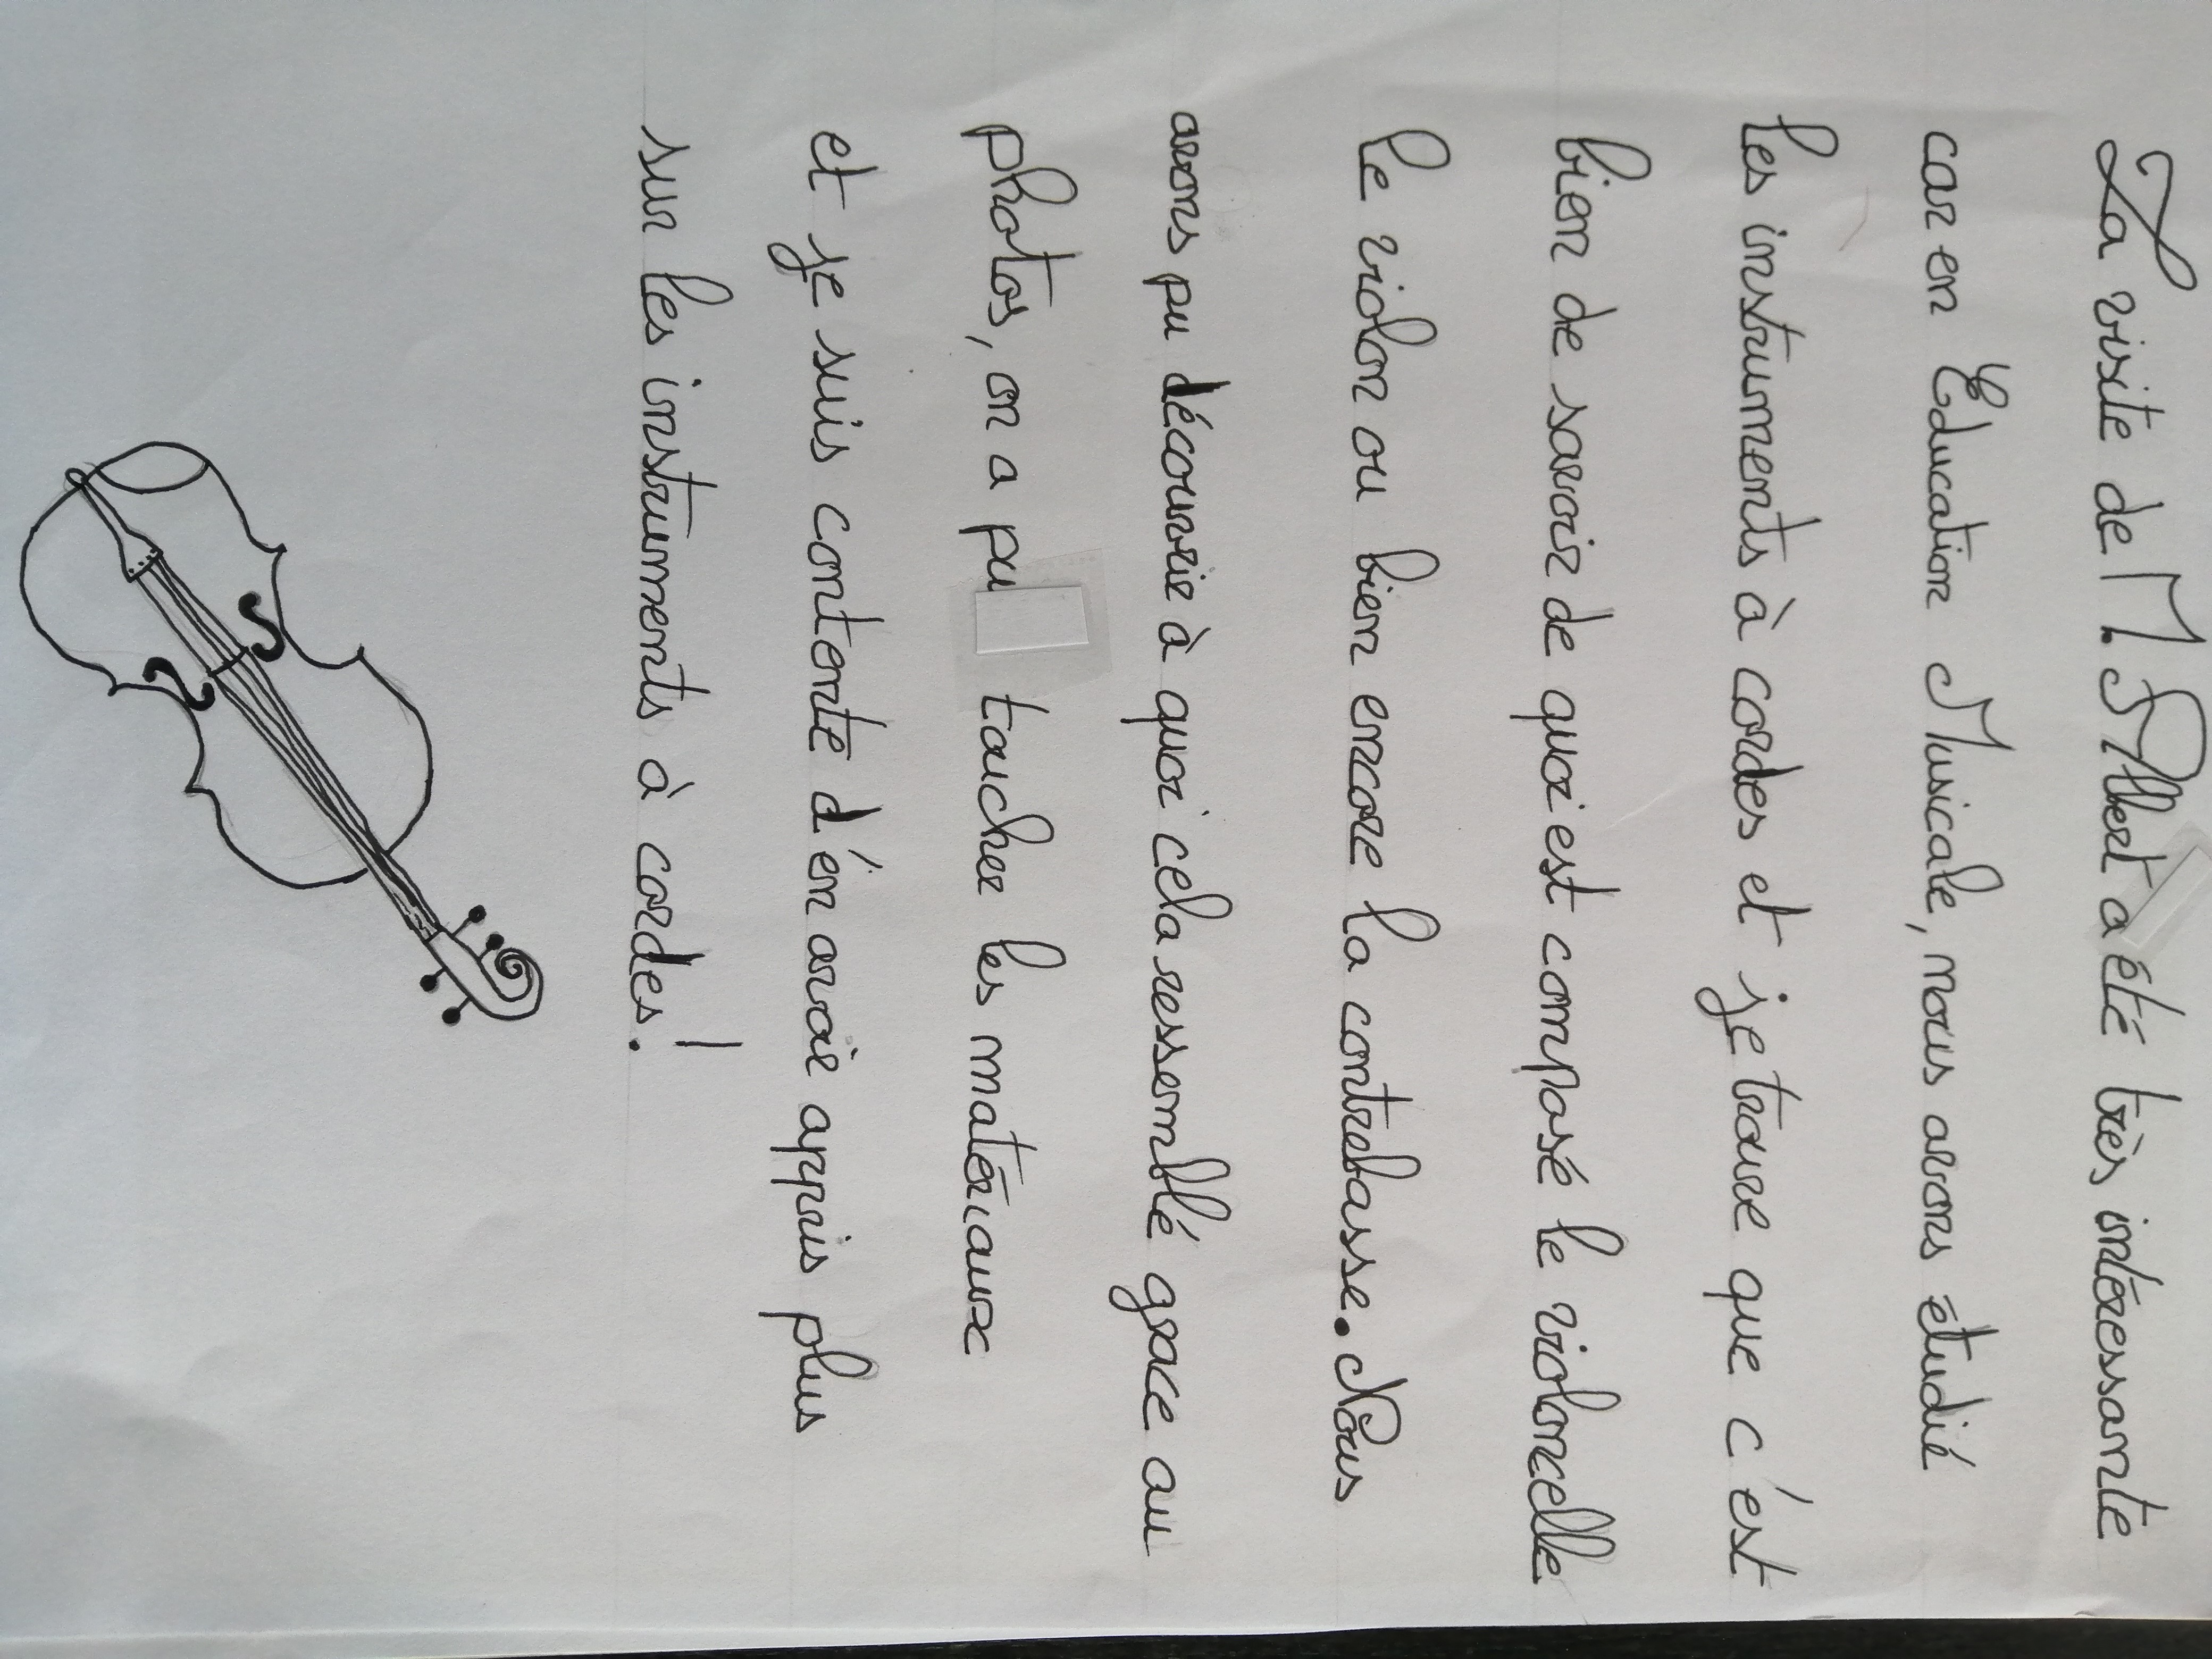 La visite de M. Albert a été très intéressante
car en Education Musicale, nous avons étudié
les instruments à cordes et je trouve que c'est
bien de savoir de quoi est composé le violoncelle
le violon ou bien encore la contrebasse. Nous
avons pu découvrir à quoi cela ressemblé grace au
photos, on a pu toucher les matériaux
et je suis contente d'en avoir appris plus
sur les instruments à cordes !